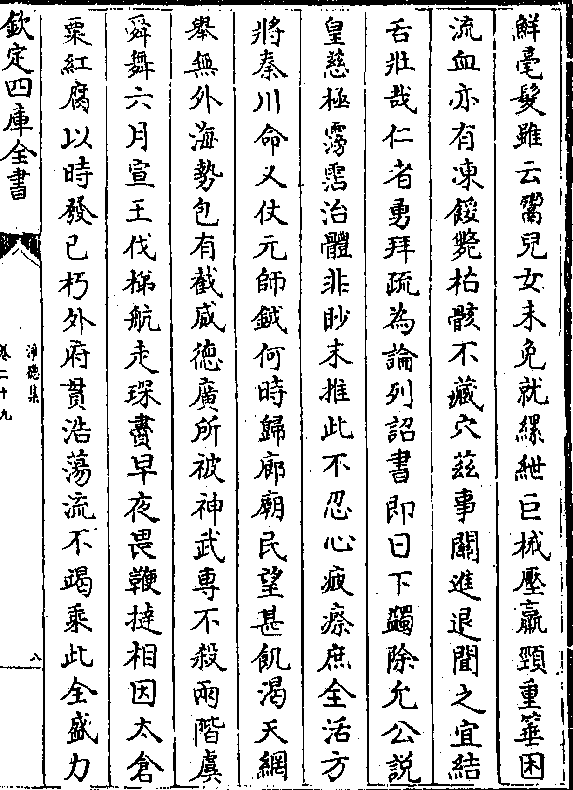 鮮毫髮雖云鬻兒女未免就縲紲巨械壓羸頸重箠困
流血亦有凍餒斃枯骸不藏穴茲事關進退聞之宜結
舌壯哉仁者勇拜疏為論列詔書即日下蠲除允公說
皇慈極霶霈治體非眇末推此不忍心疲瘵庶全活方
將秦川命又仗元師鉞何時歸廊廟民望甚飢渴天網
舉無外海勢包有截咸德廣所被神武專不殺兩階虞
舜舞六月宣王伐梯航走琛賮早夜畏鞭撻相因太倉
粟紅腐以時發已朽外府貫浩蕩流不竭乘此全盛力
欽定四庫全書
淨德集
卷二十九
八